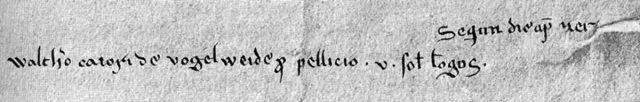 Sequn die ap
walth'o cantori de vogelweide p pellicio . v . sol' longos .